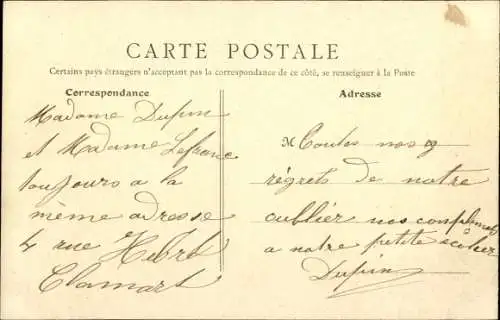 CARTE POSTALE
Certains pays étrangers n'acceptant pas la correspondance de ce côté, se renseigner à la Poste
Correspondance
Madame Dupin
et Madame Lefranc
toujours a la
même adresse
4 rue Hébert
Clamart
Adresse
M Toutes nos
régrets de notre
oublier nos compliments
a notre petite écolier
Dupin